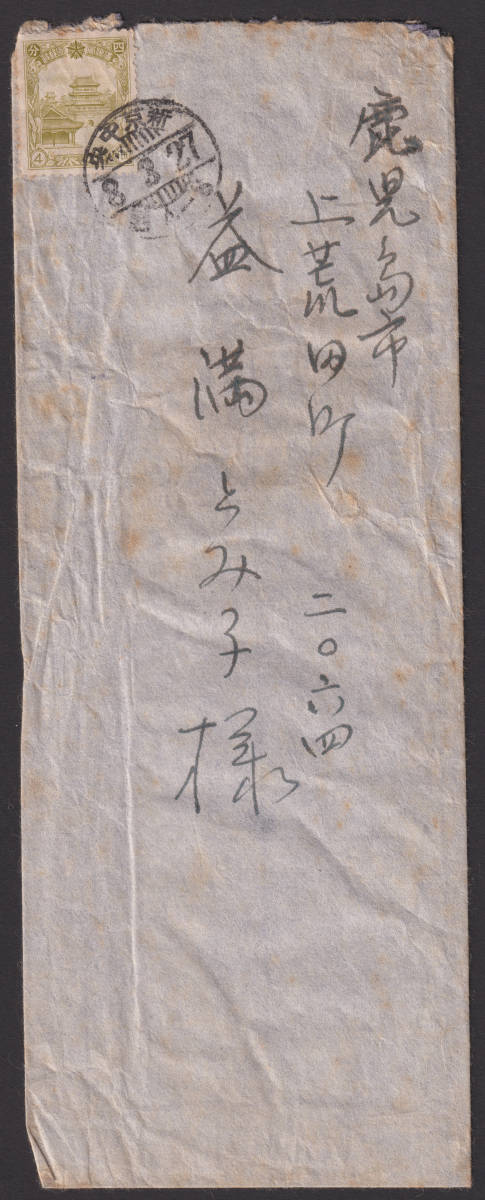 鹿児島市
上荒田町 二〇六四
益満とみ子様
四分
4
新京中央
8 3 27